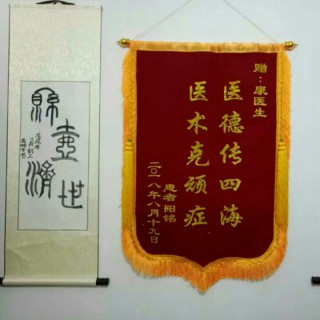 赠：康医生
医德传四海
医术克顽症
患者阳铭
二〇一八年八月十九日
縣壶濟世